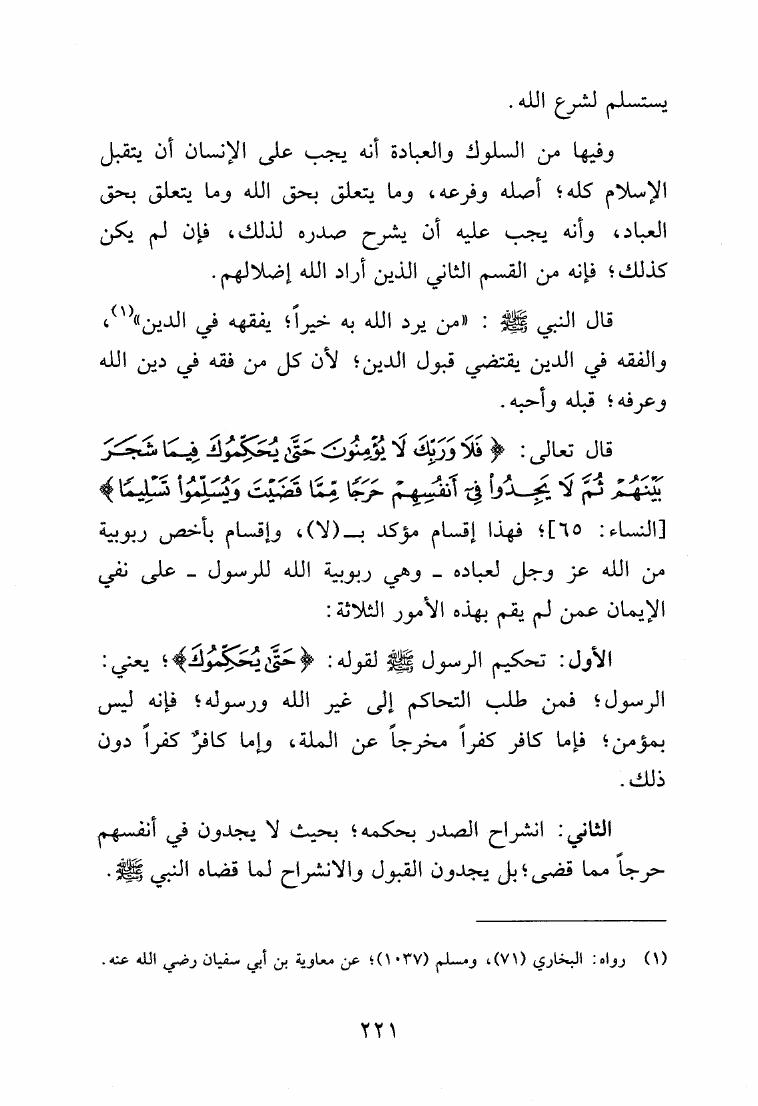 يستسلم لشرع الله.
وفيها من السلوك والعبادة أنه يجب على الإنسان أن يتقبل
الإسلام كله؛ أصله وفرعه، وما يتعلق بحق الله وما يتعلق بحق
العباد، وأنه يجب عليه أن يشرح صدره لذلك، فإن لم يكن
كذلك؛ فإنه من القسم الثاني الذين أراد الله إضلالهم.
قال النبي ﷺ : «من يرد الله به خيراً؛ يفقهه في الدين»(١)،
والفقه في الدين يقتضي قبول الدين؛ لأن كل من فقه في دين الله
وعرفه؛ قبله وأحبه.
قال تعالى: ﴿فَلَا وَرَبِّكَ لَا يُؤْمِنُونَ حَتَّىٰ يُحَكِّمُوكَ فِيمَا شَجَرَ
بَيْنَهُمْ ثُمَّ لَا يَجِدُوا۟ فِىٓ أَنفُسِهِمْ حَرَجًا مِّمَّا قَضَيْتَ وَيُسَلِّمُوا۟ تَسْلِيمًا﴾
[النساء: ٦٥]؛ فهذا إقسام مؤكد بـ(لا)، وإقسام بأخص ربوبية
من الله عز وجل لعباده - وهي ربوبية الله للرسول - على نفي
الإيمان عمن لم يقم بهذه الأمور الثلاثة:
الأول: تحكيم الرسول ﷺ لقوله: ﴿حَتَّىٰ يُحَكِّمُوكَ﴾؛ يعني:
الرسول؛ فمن طلب التحاكم إلى غير الله ورسوله؛ فإنه ليس
بمؤمن؛ فإما كافر كفراً مخرجاً عن الملة، وإما كافرٌ كفراً دون
ذلك.
الثاني: انشراح الصدر بحكمه؛ بحيث لا يجدون في أنفسهم
حرجاً مما قضى؛ بل يجدون القبول والانشراح لما قضاه النبي ﷺ.
(١) رواه: البخاري (٧١)، ومسلم (١٠٣٧)؛ عن معاوية بن أبي سفيان رضي الله عنه.
٢٢١